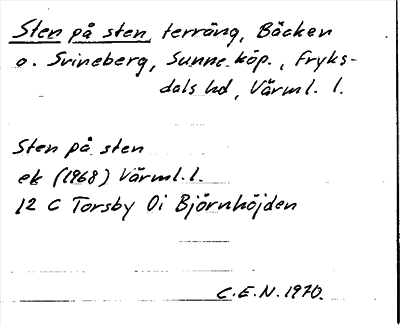 Sten på sten, terräng, Bäcken
o. Svineberg, Sunne köp., Fryks-
dals hd, Värml. l.
Sten på sten
ek (1968) Värml. l.
12 C Torsby 0i Björnhöjden
C.E.N. 1970.